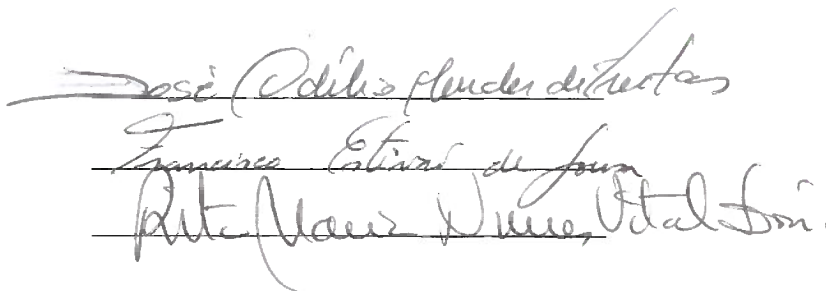 José Odílio Mendes de Freitas
Francisco Estivan de Sousa
Rita Maria Nunes Vital